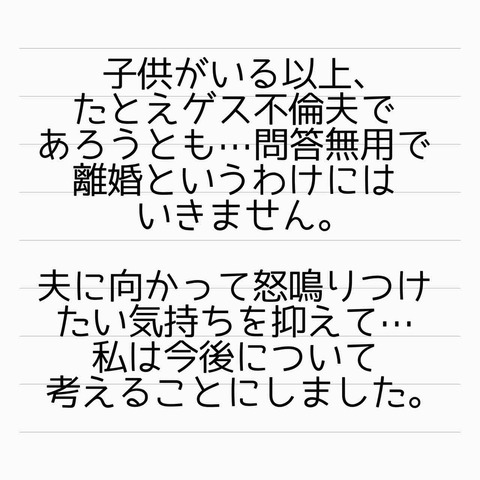 子供がいる以上、
たとえゲス不倫夫で
あろうとも…問答無用で
離婚というわけには
いきません。
夫に向かって怒鳴りつけ
たい気持ちを抑えて…
私は今後について
考えることにしました。